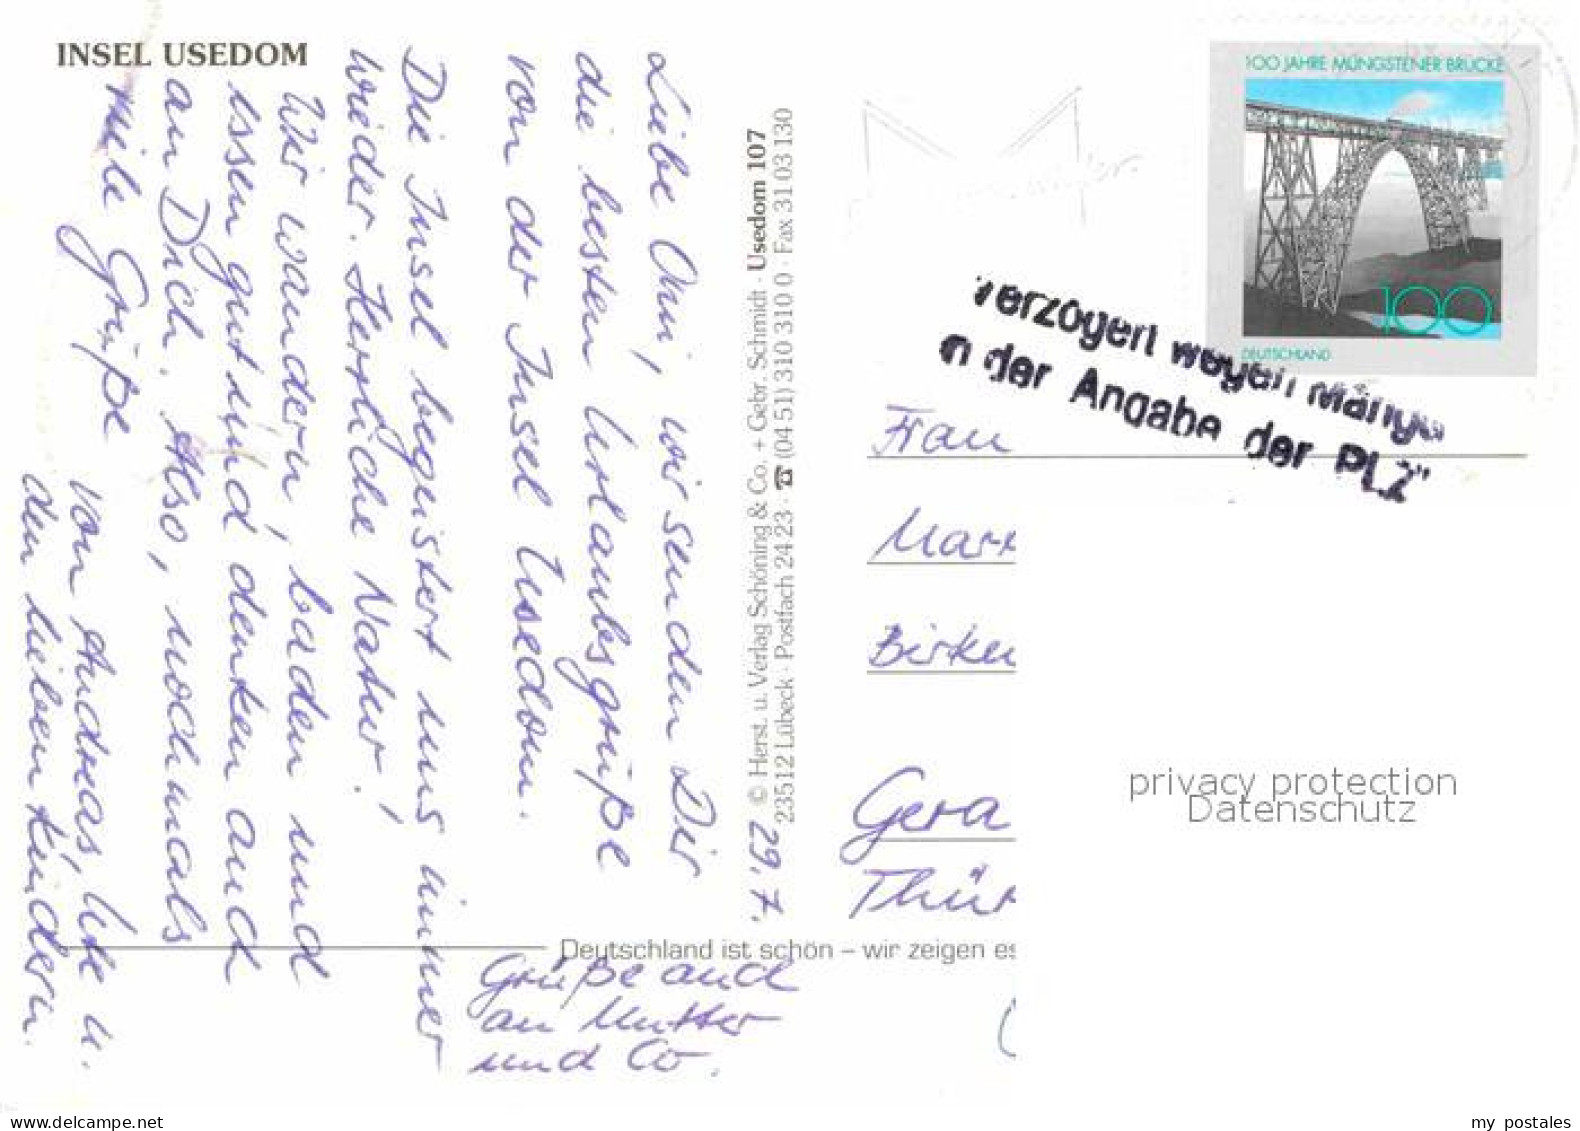 INSEL USEDOM
Liebe Omi, wir senden Dir
die besten Urlaubsgrüße
von der Insel Usedom.
Die Insel begeistert uns immer
wieder. Herrliche Natur!
Wir wandern, baden und
essen gut und denken auch
an Dich. Also, nochmals
viele Grüße
von Andreas, Ute u.
den lieben Kindern.
Grüße auch
an Mutter
und Co.
29.7.
© Herst. u. Verlag Schöning & Co. + Gebr. Schmidt · Usedom 107
23512 Lübeck · Postfach 24 23 · ☎ (04 51) 310 310 0 · Fax 31 03 130
Deutschland ist schön – wir zeigen es
100 JAHRE MÜNGSTENER BRÜCKE
100
DEUTSCHLAND
verzögert wegen Mänge
in der Angabe der PLZ"
Frau
Mar
Birken
Gera
Thür
privacy protection
Datenschutz
www.delcampe.net
my_postales